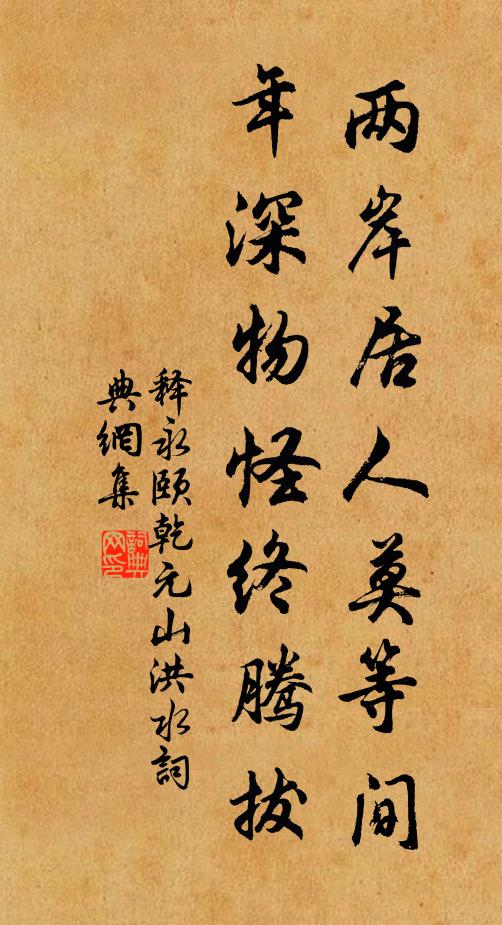 两岸居人莫等间
年深物怪终腾拔
释永颐乾元山洪水詞
典網集
詞典
网印